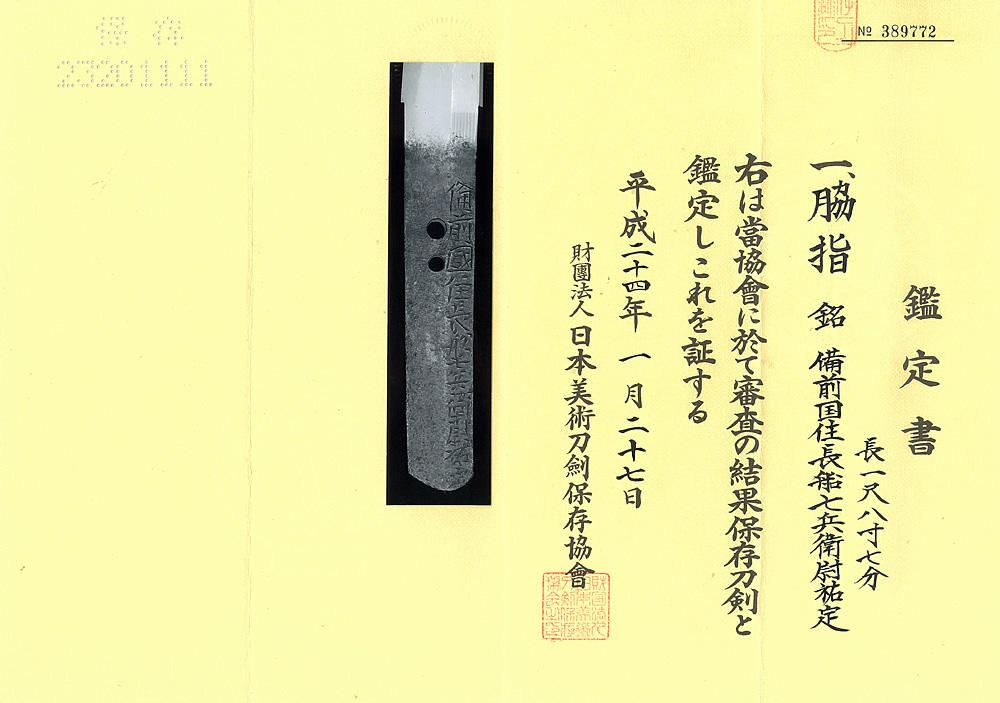 № 389772
鑑定書
一、脇指 銘 備前国住長船七兵衛尉祐定
長一尺八寸七分
右は當協會に於て審査の結果保存刀剣と
鑑定しこれを証する
平成二十四年一月二十七日
財團法人日本美術刀劍保存協會
備前國住長船七兵衛尉祐定
保存
23201111